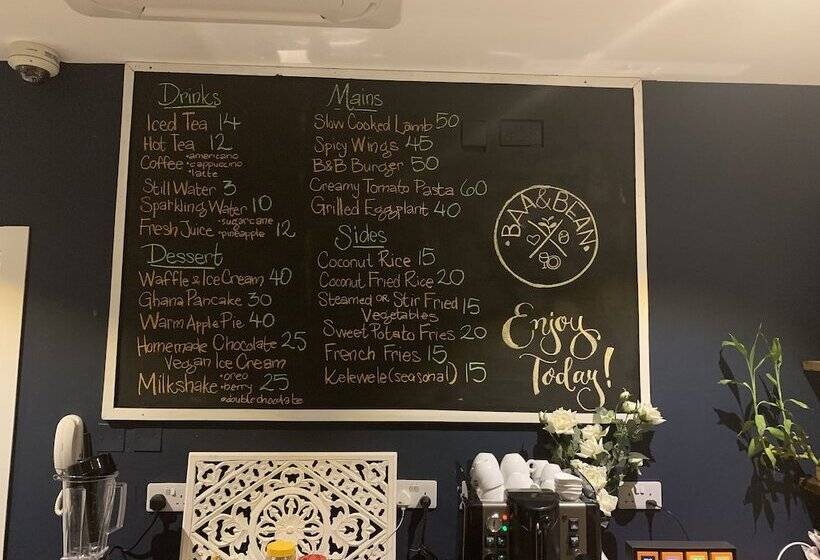 Drinks
Iced Tea 14
Hot Tea 12
Coffee •americano
•cappuccino
•latte
Still Water 3
Sparkling Water 10
Fresh Juice •sugarcane
•pineapple 12
Dessert
Waffle & Ice Cream 40
Ghana Pancake 30
Warm Apple Pie 40
Homemade Chocolate 25
Vegan Ice Cream
Milkshake •oreo
•berry 25
•double chocolate
Mains
Slow Cooked Lamb 50
Spicy Wings 45
B&B Burger 50
Creamy Tomato Pasta 60
Grilled Eggplant 40
Sides
Coconut Rice 15
Coconut Fried Rice 20
Steamed or Stir Fried 15
Vegetables
Sweet Potato Fries 20
French Fries 15
Kelewele (seasonal) 15
BAA&BEAN
Enjoy
Today!